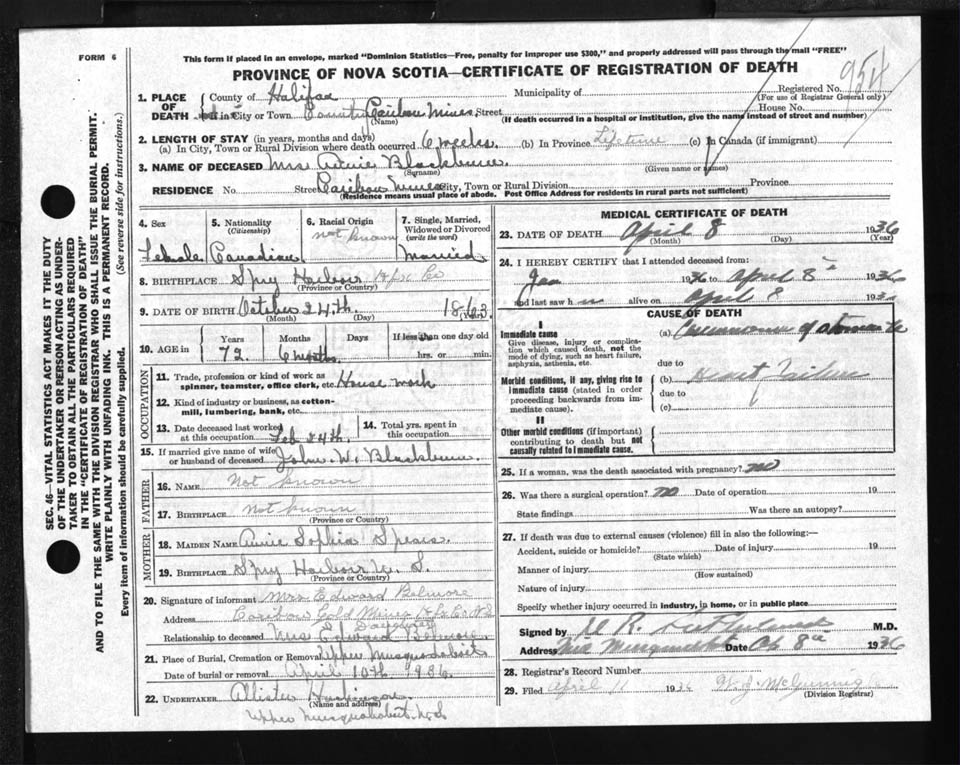 FORM 6
This form if placed in an envelope, marked "Dominion Statistics—Free, penalty for improper use $300," and properly addressed will pass through the mail "FREE"
PROVINCE OF NOVA SCOTIA—CERTIFICATE OF REGISTRATION OF DEATH
954
1. PLACE OF DEATH County of Halifax Municipality of Registered No.
(For use of Registrar General only)
in City or Town Country Caribou Mines Street House No.
(Name) (If death occurred in a hospital or institution, give the name instead of street and number)
2. LENGTH OF STAY (in years, months and days)
(a) In City, Town or Rural Division where death occurred 6 weeks. (b) In Province Lifetime (c) In Canada (if immigrant)
3. NAME OF DECEASED Mrs Annie Blackburn.
(Surname) (Given name or names)
RESIDENCE No. Street Caribou Mines City, Town or Rural Division Province
(Residence means usual place of abode. Post Office Address for residents in rural parts not sufficient)
4. Sex
Female
5. Nationality
(Citizenship)
Canadian
6. Racial Origin
not known
7. Single, Married, Widowed or Divorced
(write the word)
Married
8. BIRTHPLACE Spry Harbour Hfx Co
(Province or Country)
9. DATE OF BIRTH October 24th. 1863.
(Month) (Day)
10. AGE in Years Months Days If less than one day old
72 6 months hrs. or min.
OCCUPATION
11. Trade, profession or kind of work as spinner, teamster, office clerk, etc. House work
12. Kind of industry or business, as cotton-mill, lumbering, bank, etc.
13. Date deceased last worked at this occupation Feb 24th.
14. Total yrs. spent in this occupation
15. If married give name of wife or husband of deceased John W. Blackburn.
FATHER
16. NAME Not known
17. BIRTHPLACE Not known
(Province or Country)
MOTHER
18. MAIDEN NAME Annie Sophia Spears.
19. BIRTHPLACE Spry Harbour N. S.
(Province or Country)
20. Signature of informant Mrs Edward Belmore
Address Caribou Gold Mines Hfx Co N S
Daughter
Relationship to deceased Mrs Edward Belmore
21. Place of Burial, Cremation or Removal Upper Musquodoboit
Date of burial or removal April 10th 1936.
22. UNDERTAKER Allister
(Name and address)
Upper Musquodoboit. N.S.
MEDICAL CERTIFICATE OF DEATH
23. DATE OF DEATH April 8 1936
(Month) (Day) (Year)
24. I HEREBY CERTIFY that I attended deceased from:
Jan 1936 to April 8th 1936
and last saw h alive on April 8 19
CAUSE OF DEATH
I
Immediate cause
Give disease, injury or complication which caused death, not the mode of dying, such as heart failure, asphyxia, asthenia, etc.
(a)
due to
Morbid conditions, if any, giving rise to immediate cause (stated in order proceeding backwards from immediate cause).
(b) Heart Failure
due to
(c)
II
Other morbid conditions (if important) contributing to death but not causally related to immediate cause.
25. If a woman, was the death associated with pregnancy? no
26. Was there a surgical operation? no Date of operation 19
State findings Was there an autopsy?
27. If death was due to external causes (violence) fill in also the following:—
Accident, suicide or homicide? Date of injury 19
(State which)
Manner of injury
(How sustained)
Nature of injury
Specify whether injury occurred in industry, in home, or in public place
Signed by M.D.
Address Date Ap 8th 1936
28. Registrar's Record Number
29. Filed April 11 1936
(Division Registrar)
SEC. 46—VITAL STATISTICS ACT MAKES IT THE DUTY
OF THE UNDERTAKER OR PERSON ACTING AS UNDERTAKER TO OBTAIN ALL THE PARTICULARS REQUIRED
IN THE "CERTIFICATE OF REGISTRATION OF DEATH"
AND TO FILE THE SAME WITH THE DIVISION REGISTRAR WHO SHALL ISSUE THE BURIAL PERMIT.
WRITE PLAINLY WITH UNFADING INK. THIS IS A PERMANENT RECORD.
Every item of information should be carefully supplied. (See reverse side for instructions.)